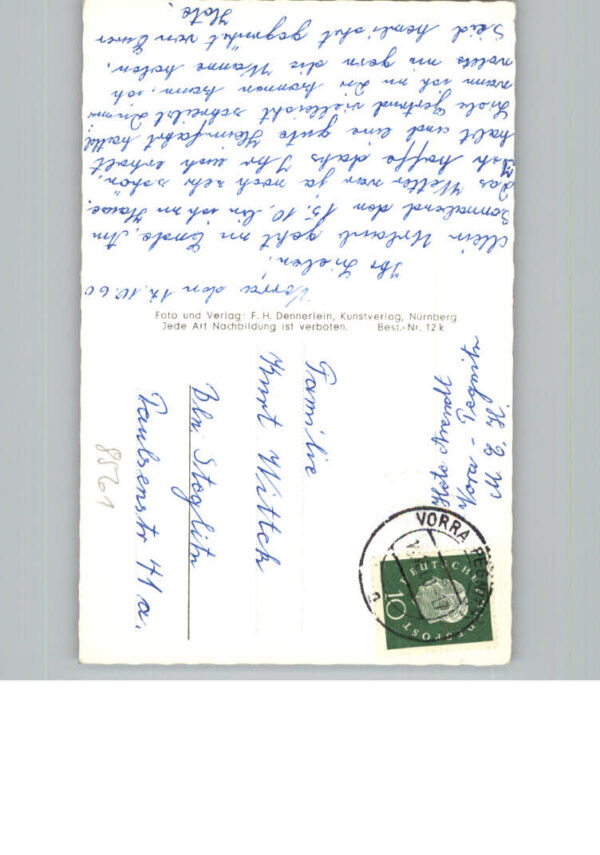 Vorra den 12.10.60
Ihr Lieben.
Mein Urlaub geht zu Ende. Am
Sonnabend den 15.10. bin ich zu Hause.
Das Wetter war ja noch sehr schön.
Ich hoffe dahs Ihr euch erholt
habt und eine gute Heimfahrt hattet
Liebe Gertrud vielleicht schreibst Du mir
wann ich zu Dir kommen kann, ich
wollte mir gern die Wanne holen.
Seid herzlichst gegrüsst von Eurer
Hete.
Foto und Verlag: F. H. Dennerlein, Kunstverlag, Nürnberg
Jede Art Nachbildung ist verboten. Best.-Nr. 12 k
Hete Arendt
Vora - Pegnitz
M. E. H.
Familie
Kurt Wittek
Bln Steglitz
Paulsenstr 41 a.
8561
VORRA
DEUTSCHE
BUNDESPOST
10